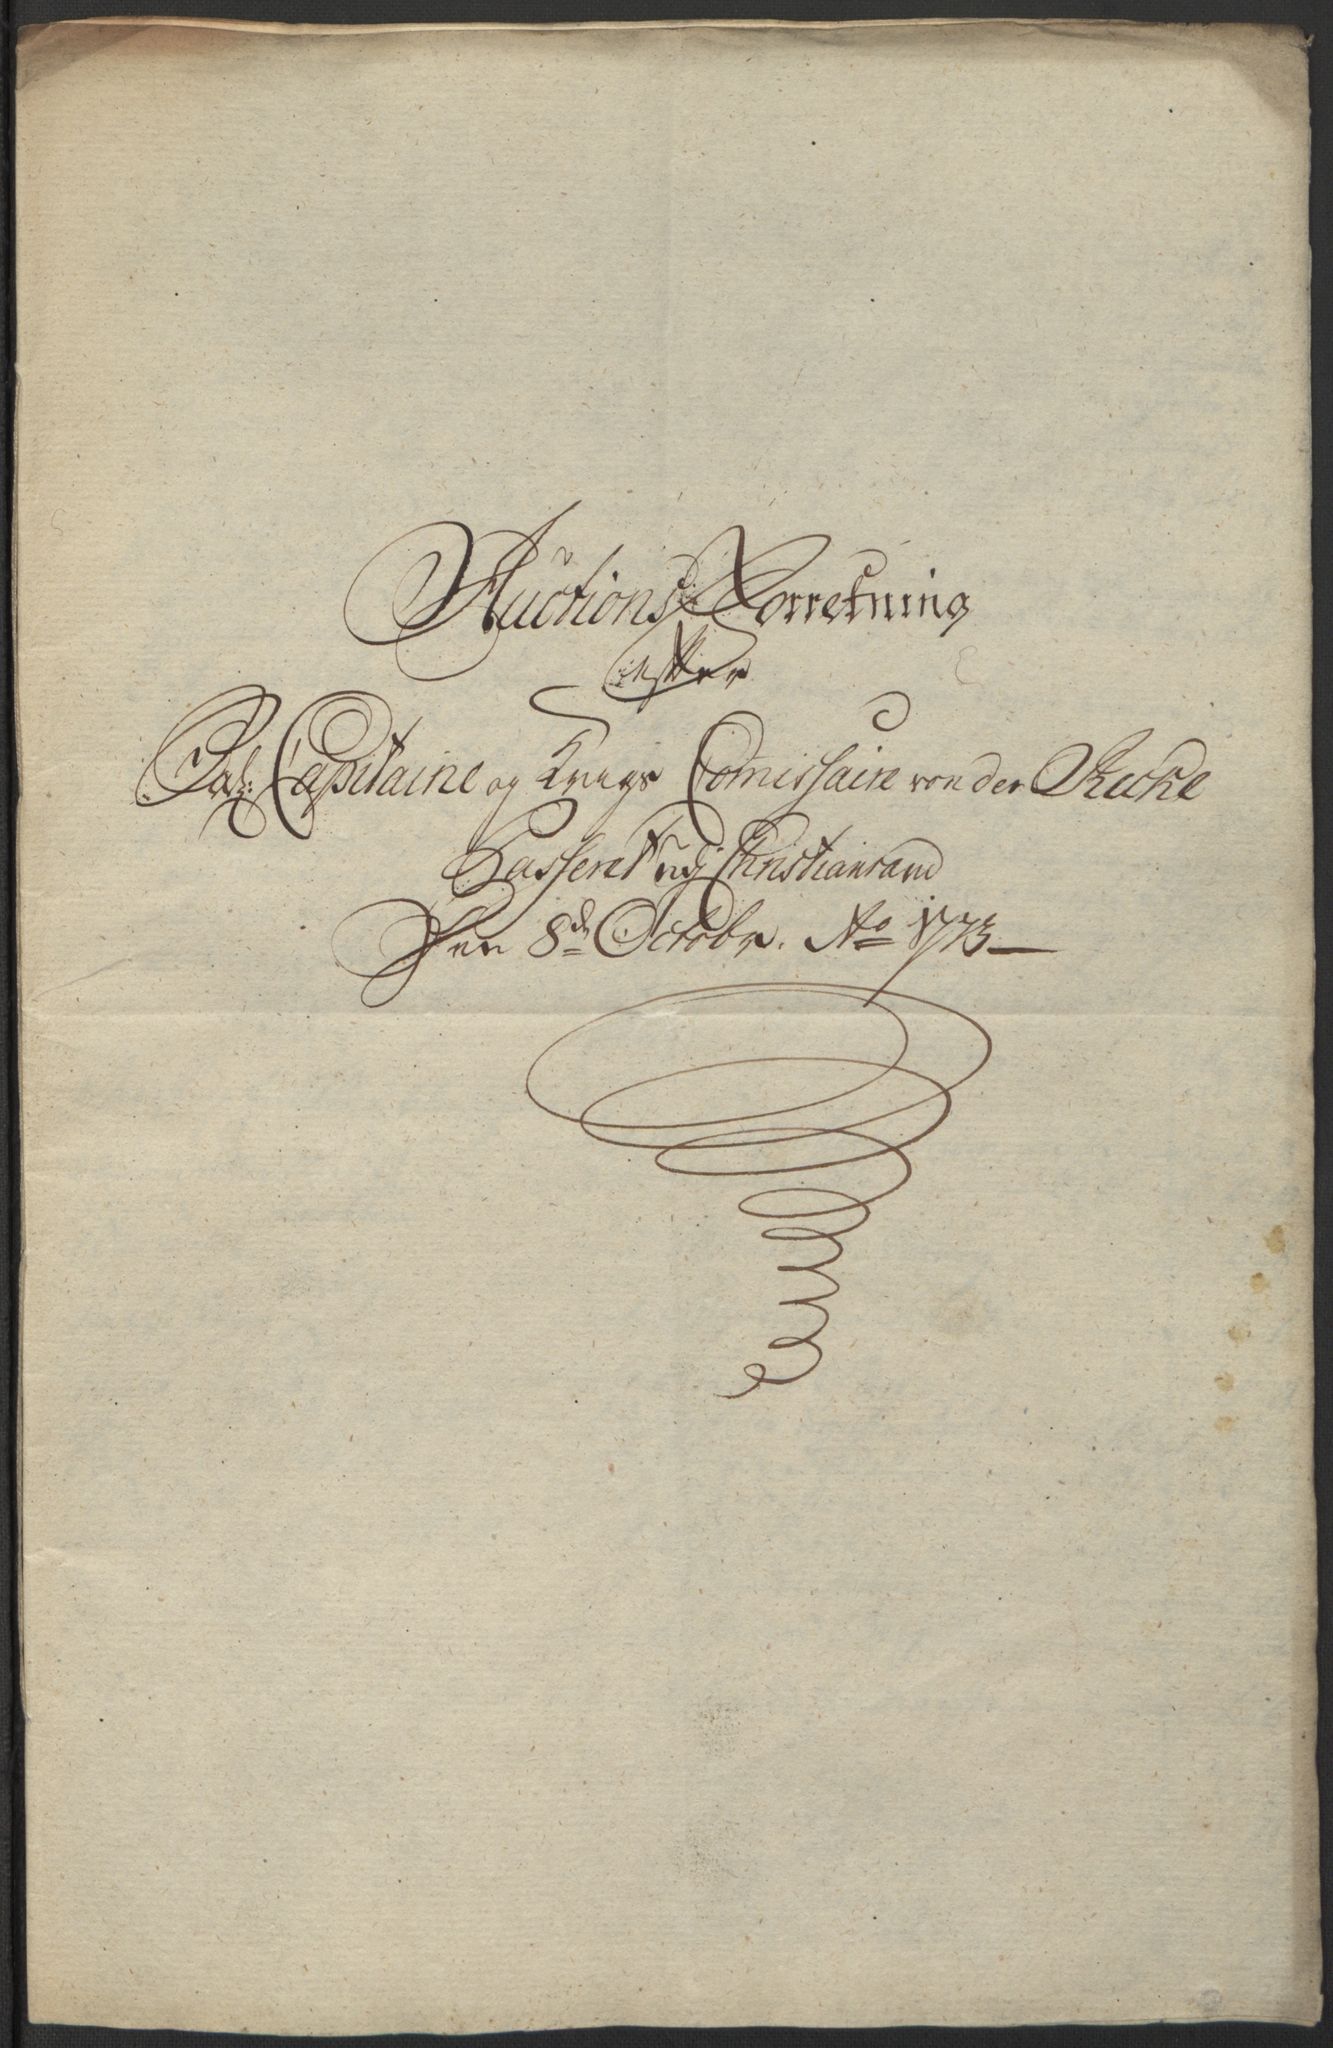 Auctions Forretning
efter
Sal: Capitaine og Krigs Comissaire von der Recke
Passeret udj Christiansand
Den 8de Octobr. Ao 1773